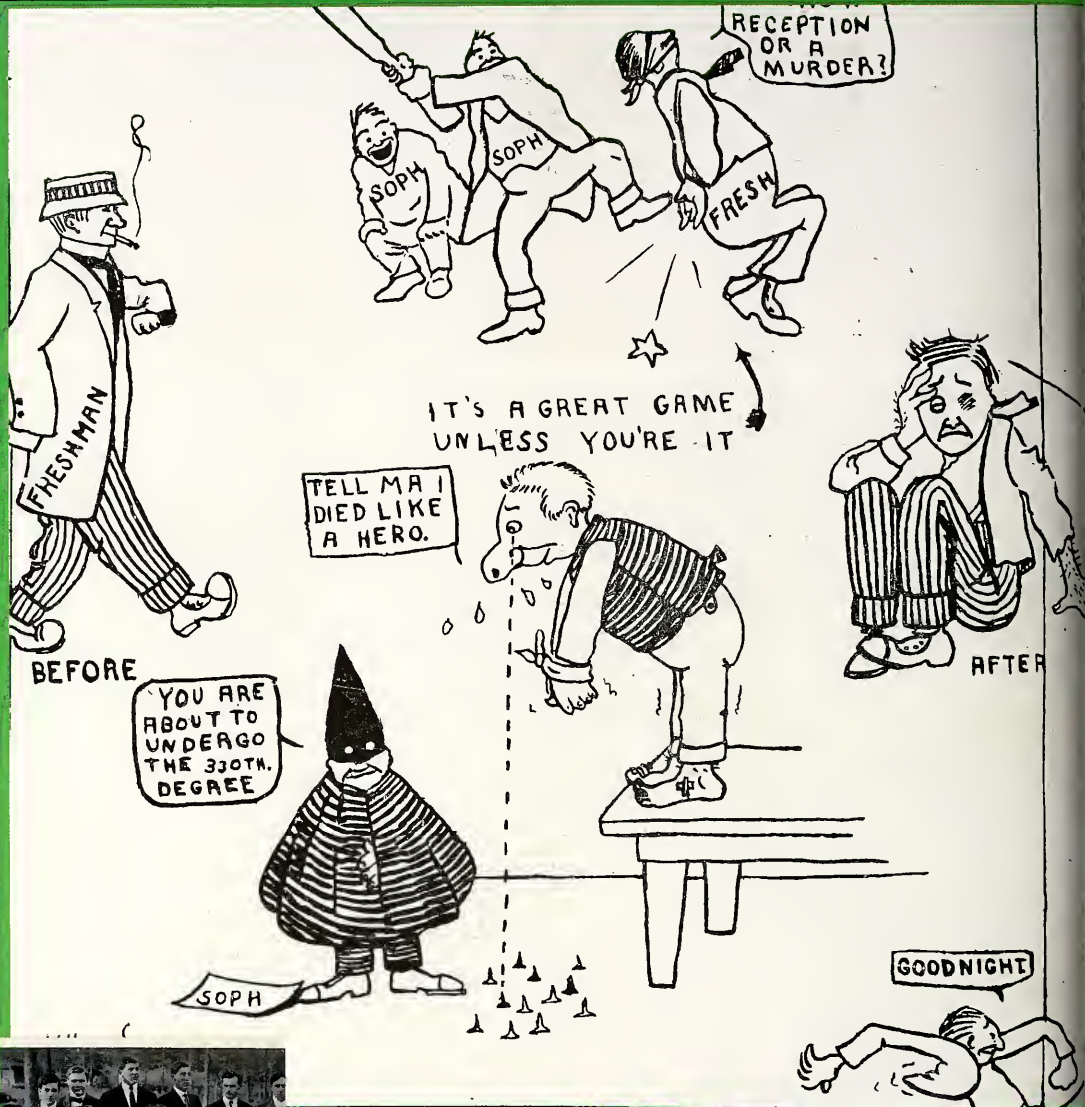 RECEPTION
OR A
MURDER?
SOPH
SOPH
FRESH
FHESHMAN
IT'S A GREAT GAME
UNLESS YOU'RE IT
TELL MA I
DIED LIKE
A HERO.
BEFORE
AFTER
YOU ARE
ABOUT TO
UNDERGO
THE 330TH.
DEGREE
SOPH
GOODNIGHT